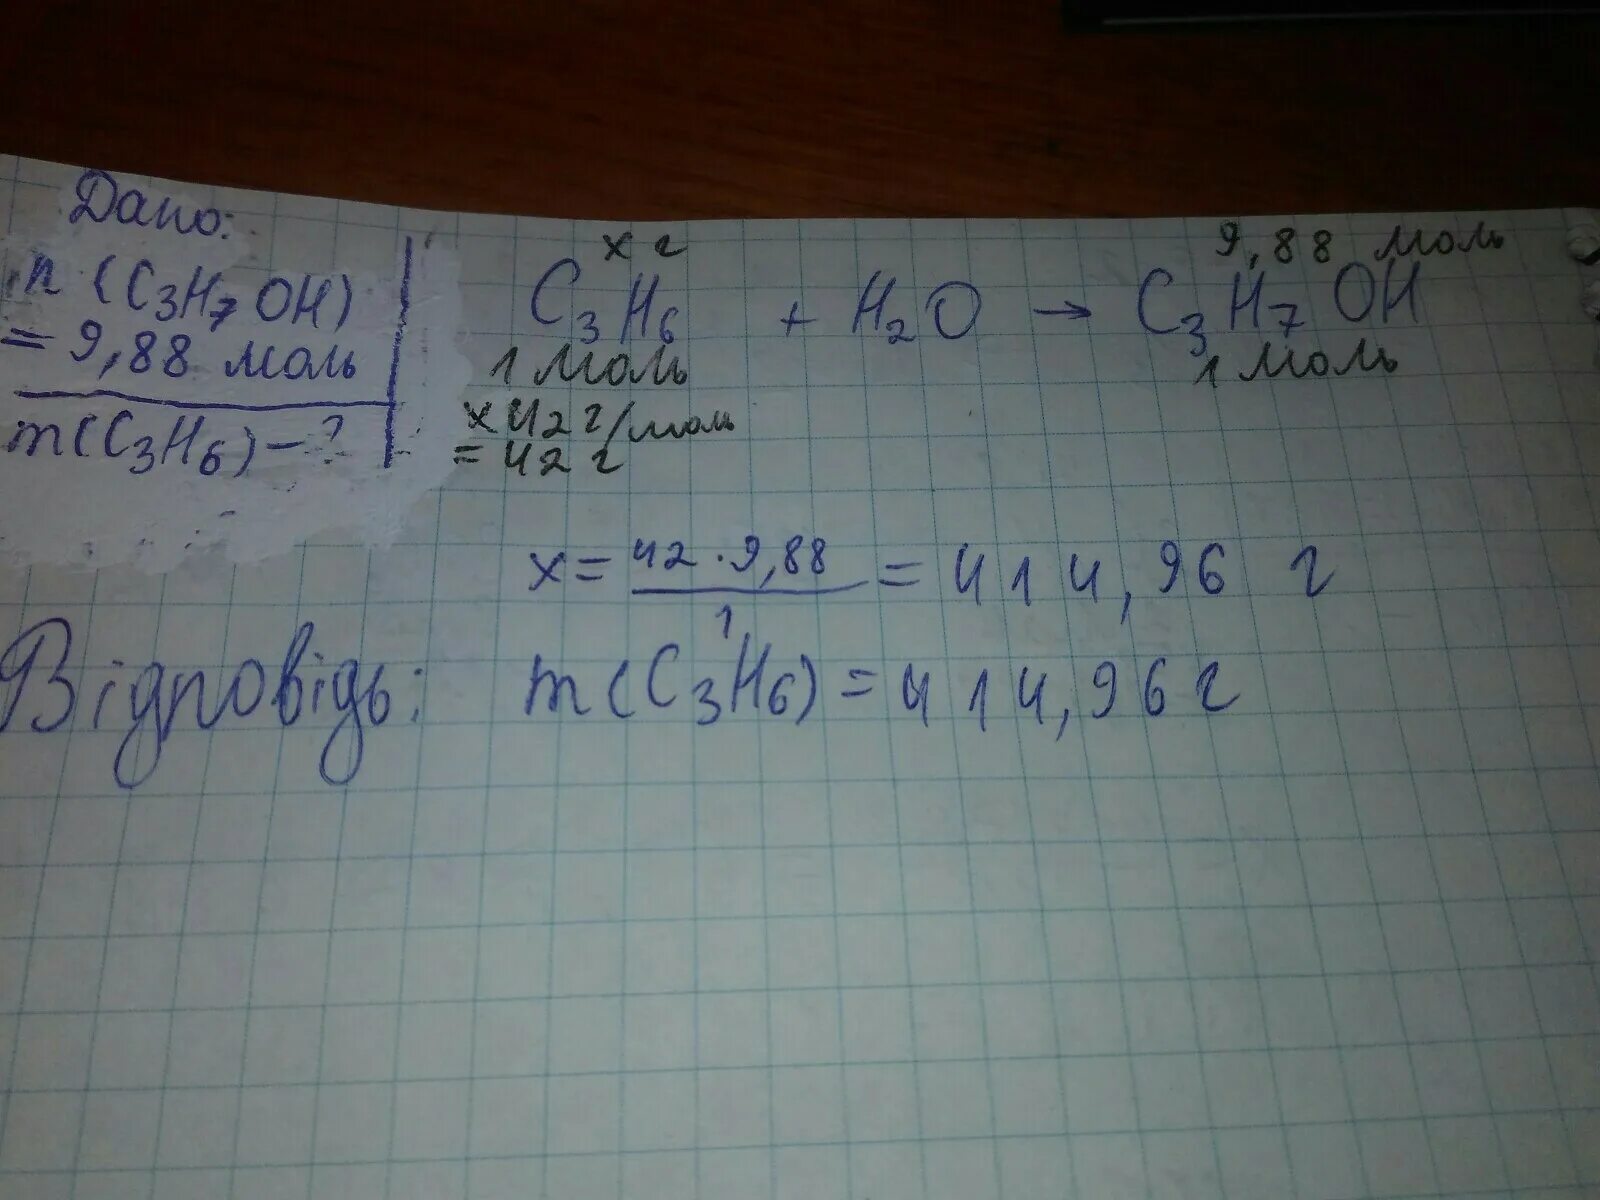 Дано:
n (C₃H₇OH)
= 9,88 моль
m(C₃H₆) – ?
x г 9,88 моль
C₃H₆ + H₂O → C₃H₇OH
1 моль 1 моль
x 42 г/моль
= 42 г
x = 42 · 9,88 / 1 = 414,96 г
Відповідь: m(C₃H₆) = 414,96 г